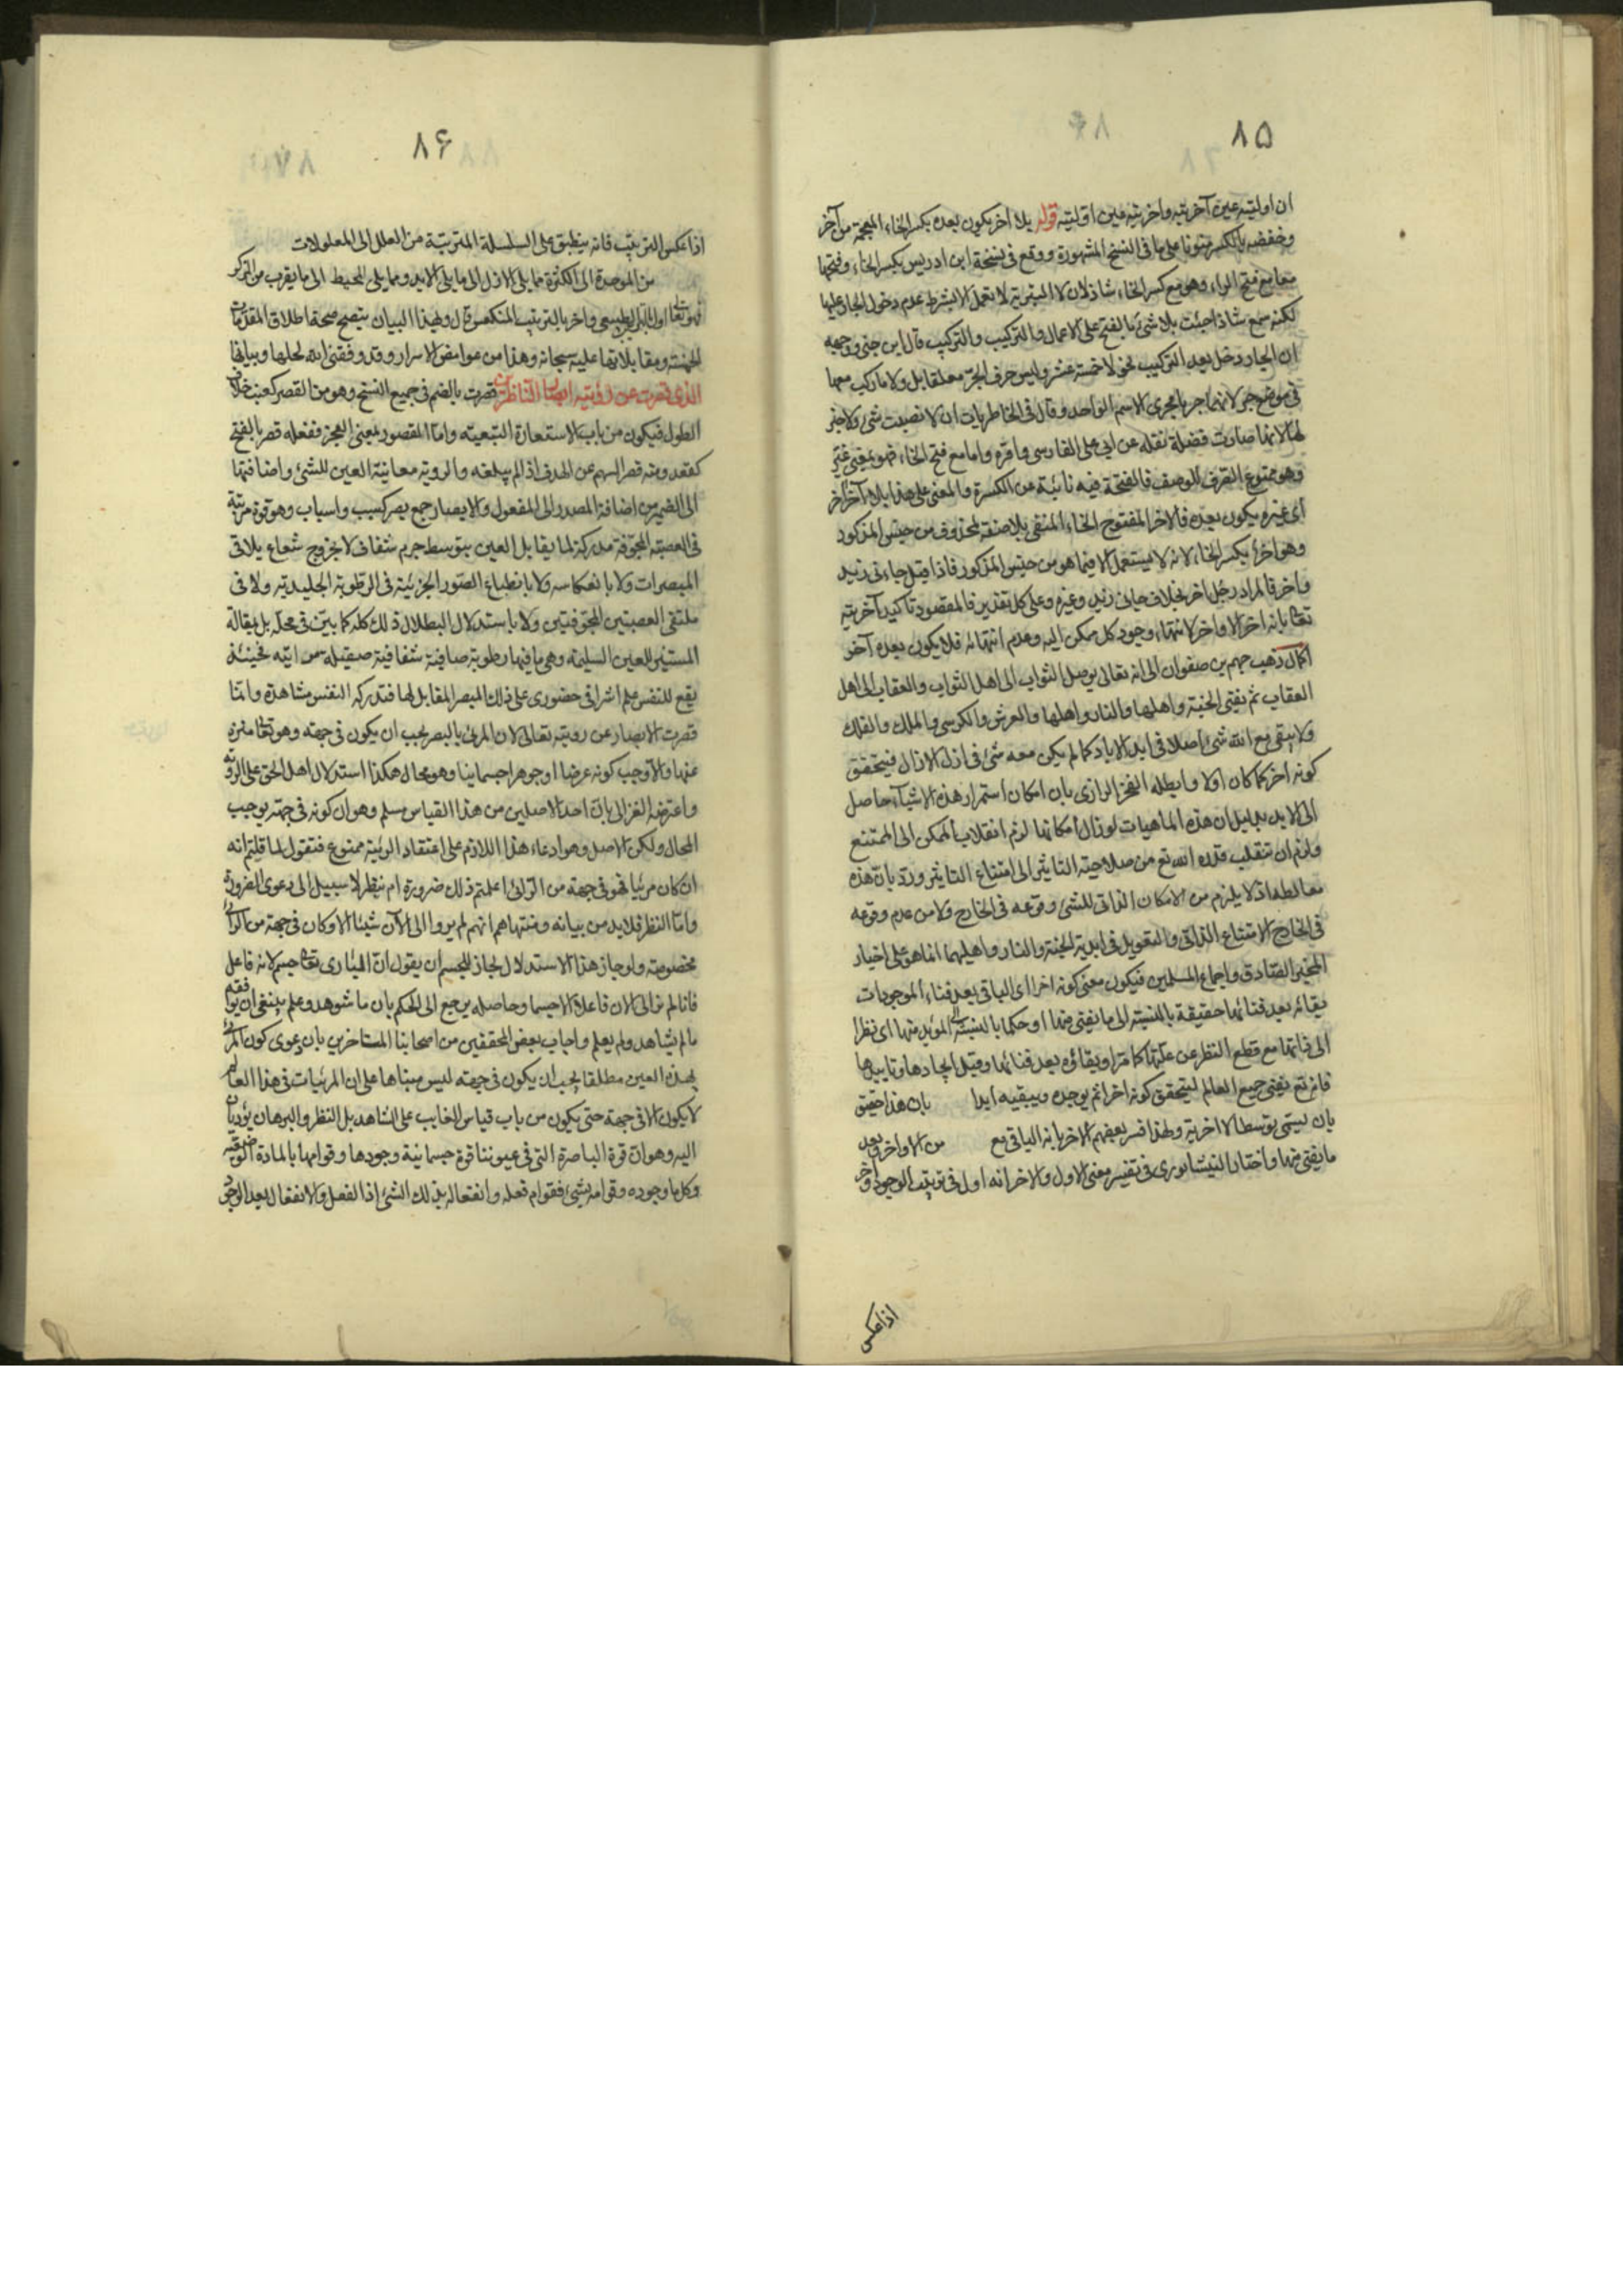 ٨۵
ان اوليته عين آخريته واخريته عين اوليته قوله بلا اخر يكون بعده بكسر الخاء المعجمة من آخر
وخفضه بالكسر منونا على ما فى النسخ المشهورة ووقع فى نسخة ابن ادريس بكسر الخاء وفتحها
معا مع فتح الراء وهو مع كسر الخاء شاذ لان لا التبرية لا تعمل الا بشرط عدم دخول الجار عليها
لكنه سمع شاذا جئت بلا شئ بالفتح على الاعمال والتركيب والتركيب قال ابن جنى ووجهه
ان الجار دخل بعد التركيب نحو لا خمسة عشر وليس حرف الجر معلقا بل ولا ما ركب معها
فى موضع جر لانهما جريا مجرى الاسم الواحد وقال فى الخاطريات ان لا نصبت شئ ولا خبر
لها لانها صارت فضلة نقله عن ابى على الفارسى واقره واما مع فتح الخاء فهو بمعنى غير
وهو ممنوع الصرف للوصف فالفتحة فيه نائبة عن الكسرة والمعنى على هذا بلا اخر آخر
أى غيره يكون بعده فالاخر المفتوح الخاء المنفى بلا صفة لمحذوف من جنس المذكور
وهو اخر بكسر الخاء لانه لا يستعمل الا فيما هو من جنس المذكور فاذا قيل جاءنى زيد
واخر فالمراد رجل اخر بخلاف جاءنى زيد وغيره وعلى كل تقدير فالمقصود تاكيد آخريته
تعالى بانه اخر الاواخر لانتهاء وجود كل ممكن اليه وعدم انتهائه فلا يكون بعده آخر
اكمال ذهب جهم بن صفوان الى انه تعالى يوصل الثواب الى اهل الثواب والعقاب الى اهل
العقاب ثم يفنى الجنة واهلها والنار واهلها والعرش والكرسى والملك والفلك
ولا يبقى مع الله شئ اصلا فى ابد الاباد كما لم يكن معه شئ فى ازل الازال فيتحقق
كونه اخرا كما كان اولا وابطله الفخر الرازى بان امكان استمرار هذه الاشياء حاصل
الى الابد بدليل ان هذه الماهيات لو زال امكانها لزم انقلاب الممكن الى الممتنع
ولزم ان تنقلب قدرة الله تع من صلاحية التاثير الى امتناع التاثير ورد بان هذه
مغالطة اذ لا يلزم من الامكان الذاتى للشئ وقوعه فى الخارج ولا من عدم وقوعه
فى الخارج الامتناع الذاتى والتعويل فى ابدية الجنة والنار واهليهما انما هو على اخبار
المخبر الصادق واجماع المسلمين فيكون معنى كونه اخرا اى الباقى بعد فناء الموجودات
بقائه بعد فنائها حقيقة بالنسبة الى ما يفنى منها او حكما بالنسبة الى المؤبد منها اى نظرا
الى ذاتها مع قطع النظر عن علتها كما مر او بقاؤه بعد فنائها وقبل ايجادها وتابيدها
فانه تع يفنى جميع العالم ليتحقق كونه اخرا ثم يوجده ويبقيه ابدا بان هذا حقيق
بان يسمى توسطا لا اخرية ولهذا فسر بعضهم الاخر بانه الباقى مع من الاواخر وبعد
ما يفنى منها واختار النيشابورى فى تفسير معنى الاول والاخر انه اول فى ترتيب الوجود واخر
اذا عكس
٨۶
اذا عكس الترتيب فانه ينطبق على السلسلة المترتبة من العلل الى المعلولات
من الوحدة الى الكثرة مما يلى الازل الى ما يلى الابد ومما يلى المحيط الى ما يقرب من المركز
فهو تعالى اول بالترتيب الطبيعى واخر بالترتيب المنعكس قال وبهذا البيان يتضح صحة اطلاق المقدمات
الخمسة ومقابلاتها عليه سبحانه وهذا من غوامض الاسرار وقد وفقنى الله لحلها وبيانها
الذى قصرت عن رؤيته ابصار الناظرين قصرت بالضم فى جميع النسخ وهو من القصر كعنب خلاف
الطول فيكون من باب الاستعارة التبعيته واما المقصود بمعنى العجز ففعله قصر بالفتح
كقعد ومنه قصر السهم عن الهدف اذا لم يبلغه والرؤية معاينة العين للشئ واضافتها
الى الضمير من اضافة المصدر الى المفعول والابصار جمع بصر كسبب واسباب وهو قوة مرتبة
فى العصبة المجوفة مدركة لما يقابل العين بتوسط جرم شفاف لا بخروج شعاع يلاقى
المبصرات ولا بانعكاسه ولا بانطباع الصور الجزئية فى الرطوبة الجليدية ولا فى
ملتقى العصبتين المجوفتين ولا باستدلال البطلان ذلك كله كما بين فى محله بل بمقابلة
المستنير للعين السليمة وهى ما فيها رطوبة صافية شفافية صقيلة من ايته فحينئذ
يقع للنفس علم اشراقى حضورى على ذلك المبصر المقابل لها فتدركه النفس مشاهدة وانما
قصرت الابصار عن رؤيته تعالى لان المرئى بالبصر يجب ان يكون فى جهة وهو تعالى منزه
عنها والا وجب كونه عرضا او جوهرا جسمانيا وهو محال هكذا استدلال اهل الحق على الرؤية
واعترضه الغزالى بان احد الاصلين من هذا القياس مسلم وهو ان كونه فى جهة يوجب
المحال ولكن الاصل وهو ادعاء هذا اللازم على اعتقاد الرؤية ممنوع فنقول لما قلتم انه
ان كان مرئيا فهو فى جهة من الرائى اعلمتم ذلك ضرورة ام بنظر لا سبيل الى دعوى الضرورة
واما النظر فلا بد من بيانه ومنتهاهم انهم لم يروا الى الآن شيئا الا وكان فى جهة من الرائى
مخصوصة ولو جاز هذا الاستدلال لجاز للمجسم ان يقول ان البارى تعالى جسم لانه فاعل
فانا لم نر الى الان فاعلا الا جسما وحاصله يرجع الى الحكم بان ما شوهد وعلم ينبغى ان يوافقه
ما لم يشاهد ولم يعلم واجاب بعض المحققين من اصحابنا المتاخرين بان دعوى كون المرئى
بهذه العين مطلقا يجب ان يكون فى جهة ليس مبناها على ان المرئيات فى هذا العالم
لا يكون الا فى جهة حتى يكون من باب قياس الغايب على الشاهد بل النظر والبرهان يؤديان
اليه وهو ان قوة الباصرة التى فى عيوننا قوة جسمانية وجودها وقوامها بالمادة الوضعية
وكل ما وجوده وقوامه بشئ فقوام فعله وانفعاله بذلك الشئ اذا الفعل والانفعال بعد الوجود